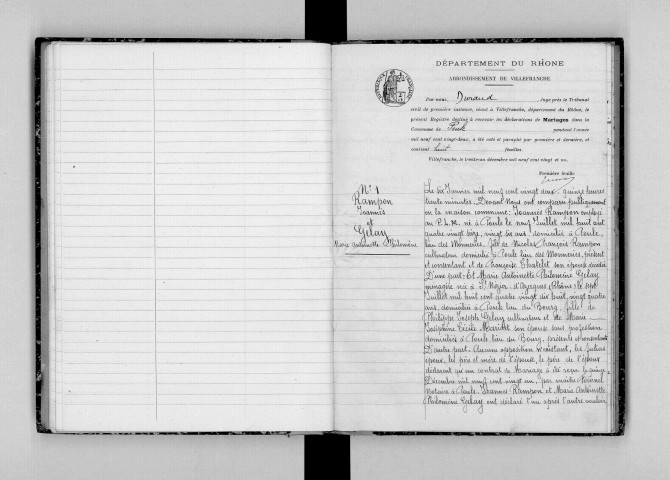 DÉPARTEMENT DU RHÔNE
ARRONDISSEMENT DE VILLEFRANCHE
Par nous, Durand Juge près le Tribunal
civil de première instance, séant à Villefranche, département du Rhône, le
présent Registre destiné à recevoir les déclarations de Mariages dans la
Commune de Poule pendant l'année
mil neuf cent vingt-deux, a été coté et paraphé par première et dernière, et
contient huit feuilles.
Villefranche, le trente-un décembre mil neuf cent vingt et un.
Première feuille
N° 1
Rampon
Joannès
et
Gelay
Marie Antoinette Philomène
Le six Janvier mil neuf cent vingt deux, quinze heures
trente minutes, Devant Nous ont comparu publiquement
en la maison commune: Joannès Rampon employé
au P.L.M. né à Poule le neuf Juillet mil huit cent
quatre vingt seize, vingt six ans domicilié à Poule
lieu des Monneries, fils de Nicolas François Rampon
cultivateur domicilié à Poule lieu des Monneries, présent
et consentant et de Françoise Chatelet son épouse décédée
D'une part. Et Marie Antoinette Philomène Gelay
ménagère née à St Nizier d'Azergues Rhône le sept
Juillet mil huit cent quatre vingt dix huit, vingt quatre
ans, domiciliée à Poule lieu du Bourg, fille de
Philippe Joseph Gelay cultivateur et de Marie
Joséphine Cécile son épouse sans profession
domiciliés à Poule lieu du Bourg, présents et consentants
D'autre part. Aucune opposition n'existant, les futurs
époux, les père et mère de l'épouse, le père de l'époux
déclarent qu'un contrat de Mariage a été reçu le
Décembre mil neuf cent vingt un, par maître
Notaire à Poule. Joannès Rampon et Marie Antoinette
Philomène Gelay ont déclaré l'un après l'autre vouloir